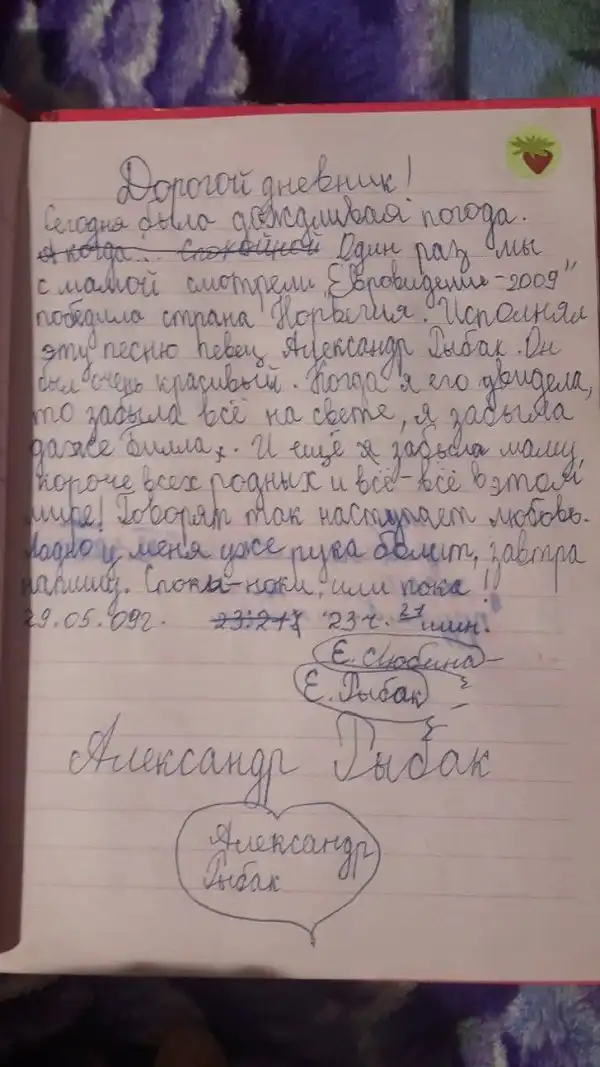 Дорогой дневник!
Сегодня была дождливая погода.
А когда... спокойной Один раз мы
с мамой смотрели „Евровидение-2009"
победила страна Норвегия. Исполнял
эту песню певец Александр Рыбак. Он
был очень красивый. Когда я его увидела,
то забыла всё на свете, я забыла
даже Билла. И ещё я забыла маму,
короче всех родных и всё-всё в этом
мире! Говорят так наступает любовь.
Ладно у меня уже рука болит, завтра
напишу. Споки-ноки, или пока!
29.05.09г. 23:21 23ч. 21 мин.
Е. Любина
Е. Рыбак
Александр Рыбак
Александр
Рыбак